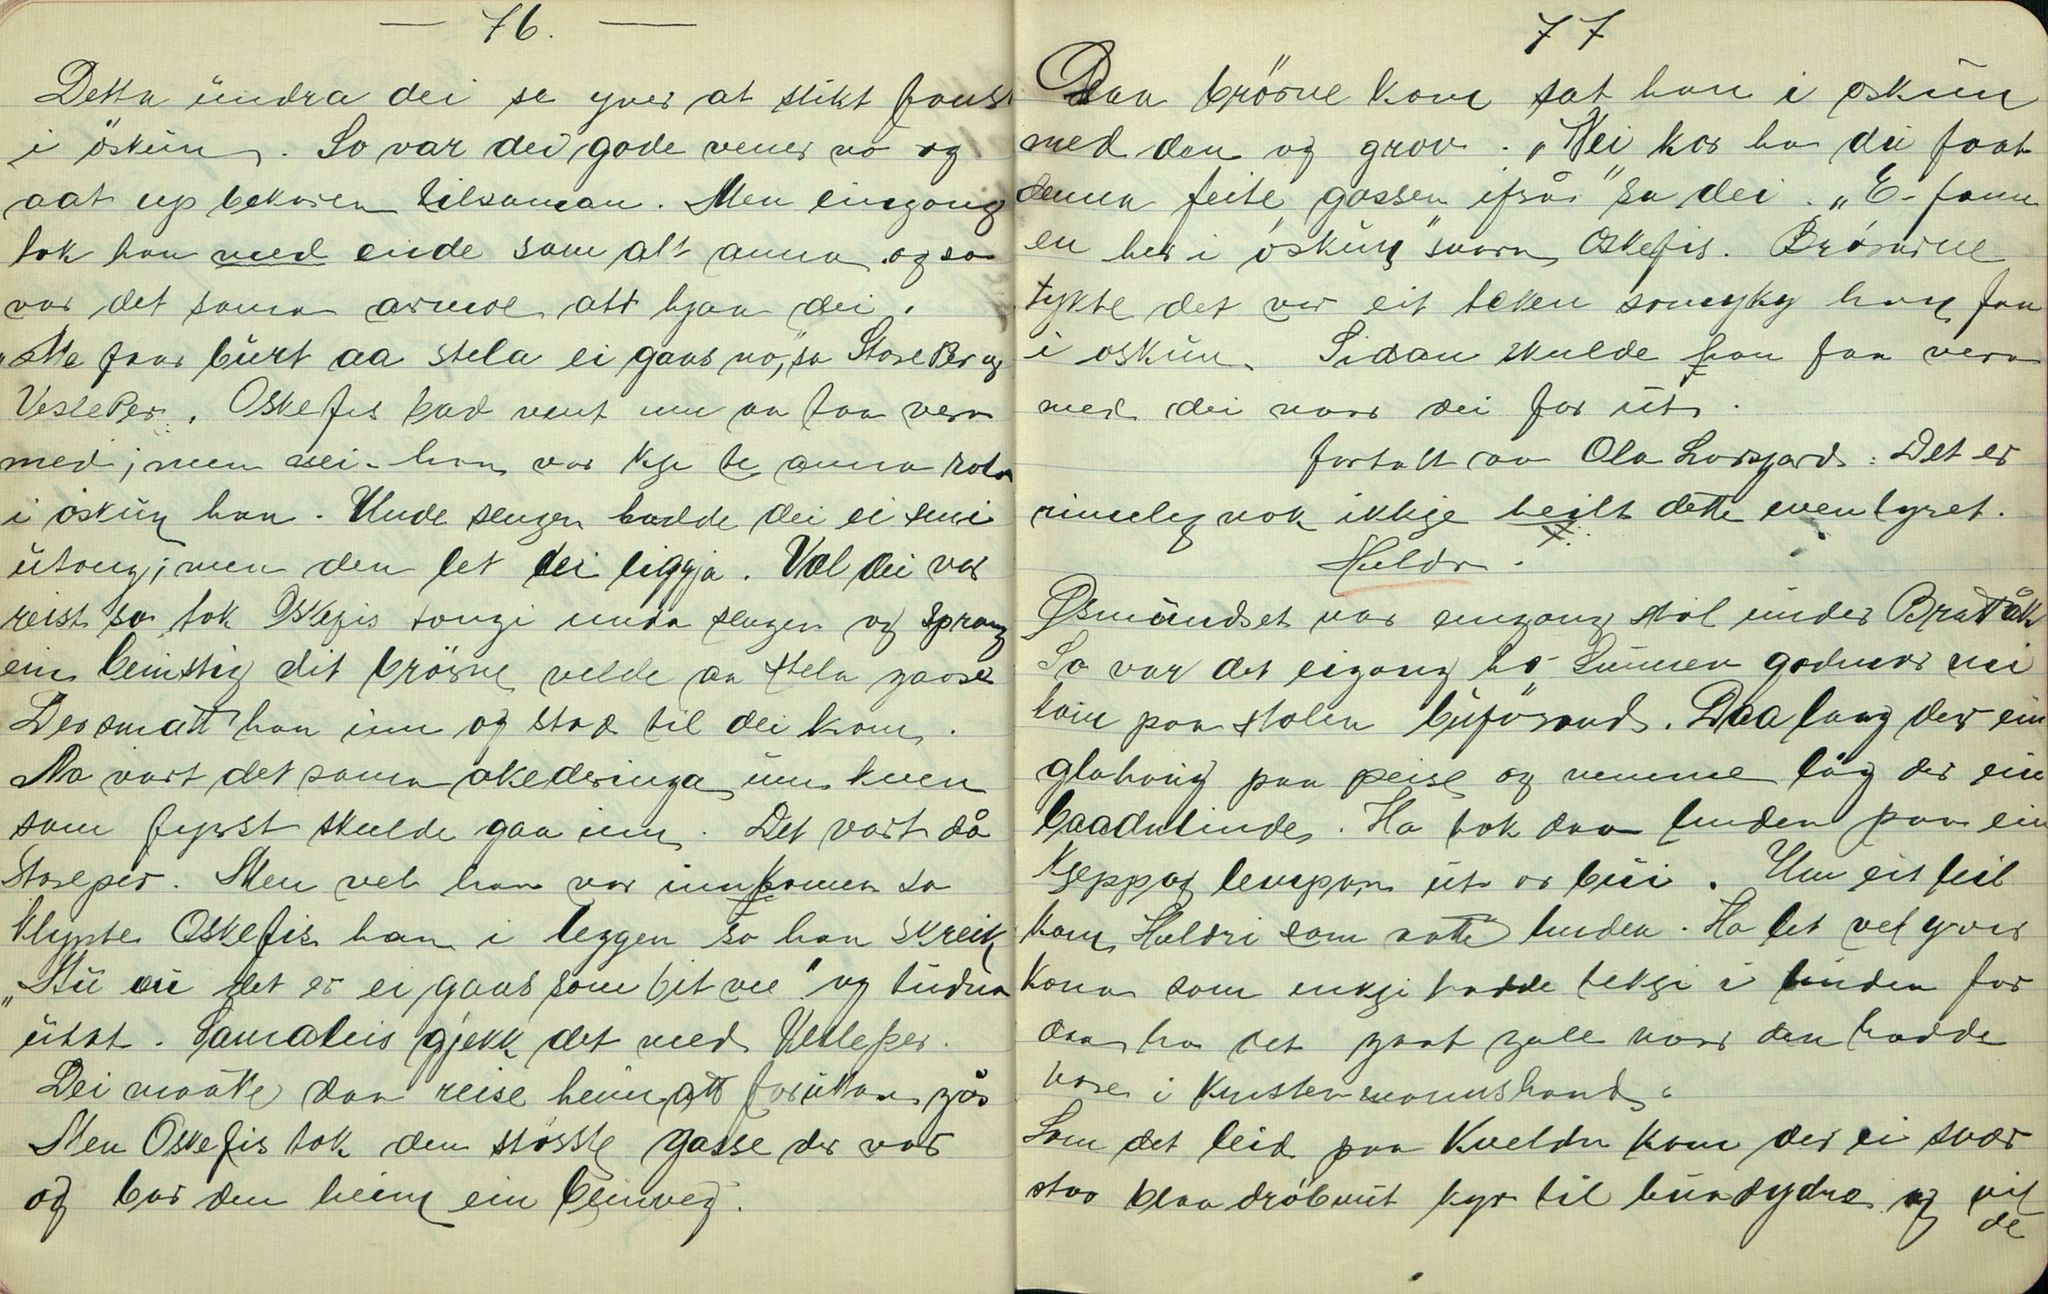 — 76. —
Detta undra dei se yver at slikt fanst
i öskun. So var dei gode vener no og
aat up bekaren tilsaman. Men eingong
tok han med ende som alt anna og so
var det sama armoe att hjaa dei.
"Me faar burt aa stela ei gaas no," sa StorePer og
VeslePer. Oskefis bad vent um aa faa vera
med; men nei - han var kje te anna rota
i öskun han. Unde sengen hadde dei ei smi
utong; men den let dei liggja. Vel dei var
reist so tok Oskefis tongi unda sengen og sprang
ein beinstig dit brörne vilde aa stela gaase
Der smatt han inn og stod til dei kom.
No vart det sama akederinga um kven
som fyrst skulde gaa inn. Det vart då
Storeper. Men vel han var innkomen so
klypte Oskefis han i leggen so han skreik
"Uu uu det er ei gaas som bit me" og tudna
utat. Samaleis gjekk det med Vesleper.
Dei maatte daa reise heim att forutan gås
Men Oskefis tok den störste gasse der var
og bar den heim ein beinveg.
77
Daa brörne kom sat han i oskun
med den og grov. "Nei kor ha du faat
denna feite gassen ifrå" sa dei. "E fann
en her i öskun" svara Oskefis. Brörarne
tykte det var eit teken somykj han fan
i oskun. Sidan skulde han faa vera
med dei naar dei for ut.
fortalt av Ola Lorsgard: Det er
rimeleg nok ikkje heilt dette eventyret.
Huldr.
Øsmundset var eingong støl under Brattåk
So var det eigong ho Sunnen godmor mi
kom paa stolen buförand. Daa laag der ein
glohaug paa peise og nemme låg der ein
baadnlinde. Ho tok daa linden paa ein
kjepp og lempan ut or bui. Um eit bil
kom Huldri som aatte linden. Ho let vel yver
kona som inkje hadde tekji i linden for
daa ha det gaat gale naar den hadde
vore i kristenmannshand.
Som det leid paa kvelden kom der ei svær
stor blaa dröbmit kyr til buadydra og vil
de